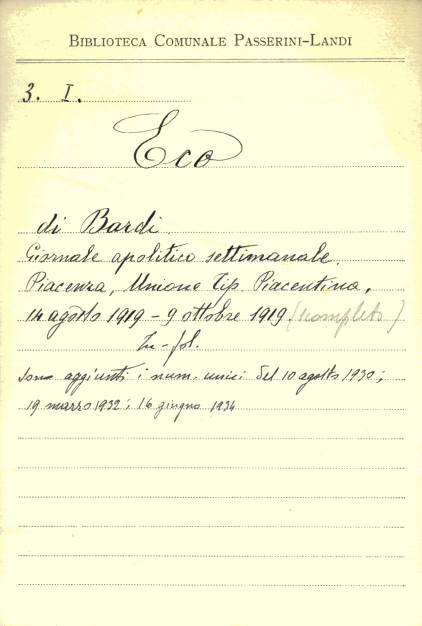 BIBLIOTECA COMUNALE PASSERINI-LANDI
3. I.
Eco
di Bardi.
Giornale apolitico settimanale.
Piacenza, Unione Tip. Piacentina,
14 agosto 1919 - 9 ottobre 1919 (completo)
In-fol.
Sono aggiunti i num. unici del 10 agosto 1930;
19 marzo 1932; 16 giugno 1934